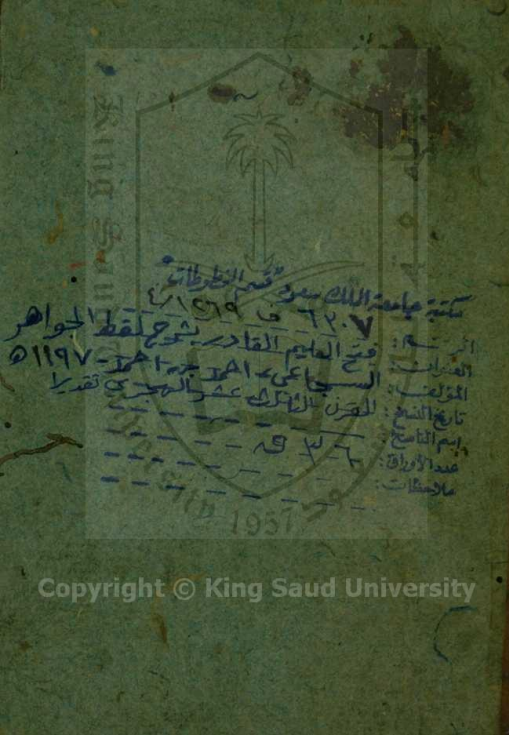 مكتبة جامعة الملك سعود "قسم المخطوطات"
الرقم: ٦٣٠٧ ف ١٢٦٩/٤
العنوان: فتح العليم القادر بشرح لقط الجواهر
المؤلف: السجاعي، احمد بن احمد - ١١٩٧ه
تاريخ النسخ: القرن الثالث عشر الهجري تقديرا
اسم الناسخ:
عدد الأوراق: ٣٦ ق
ملاحظات:
King Saud University
1957
Copyright © King Saud University